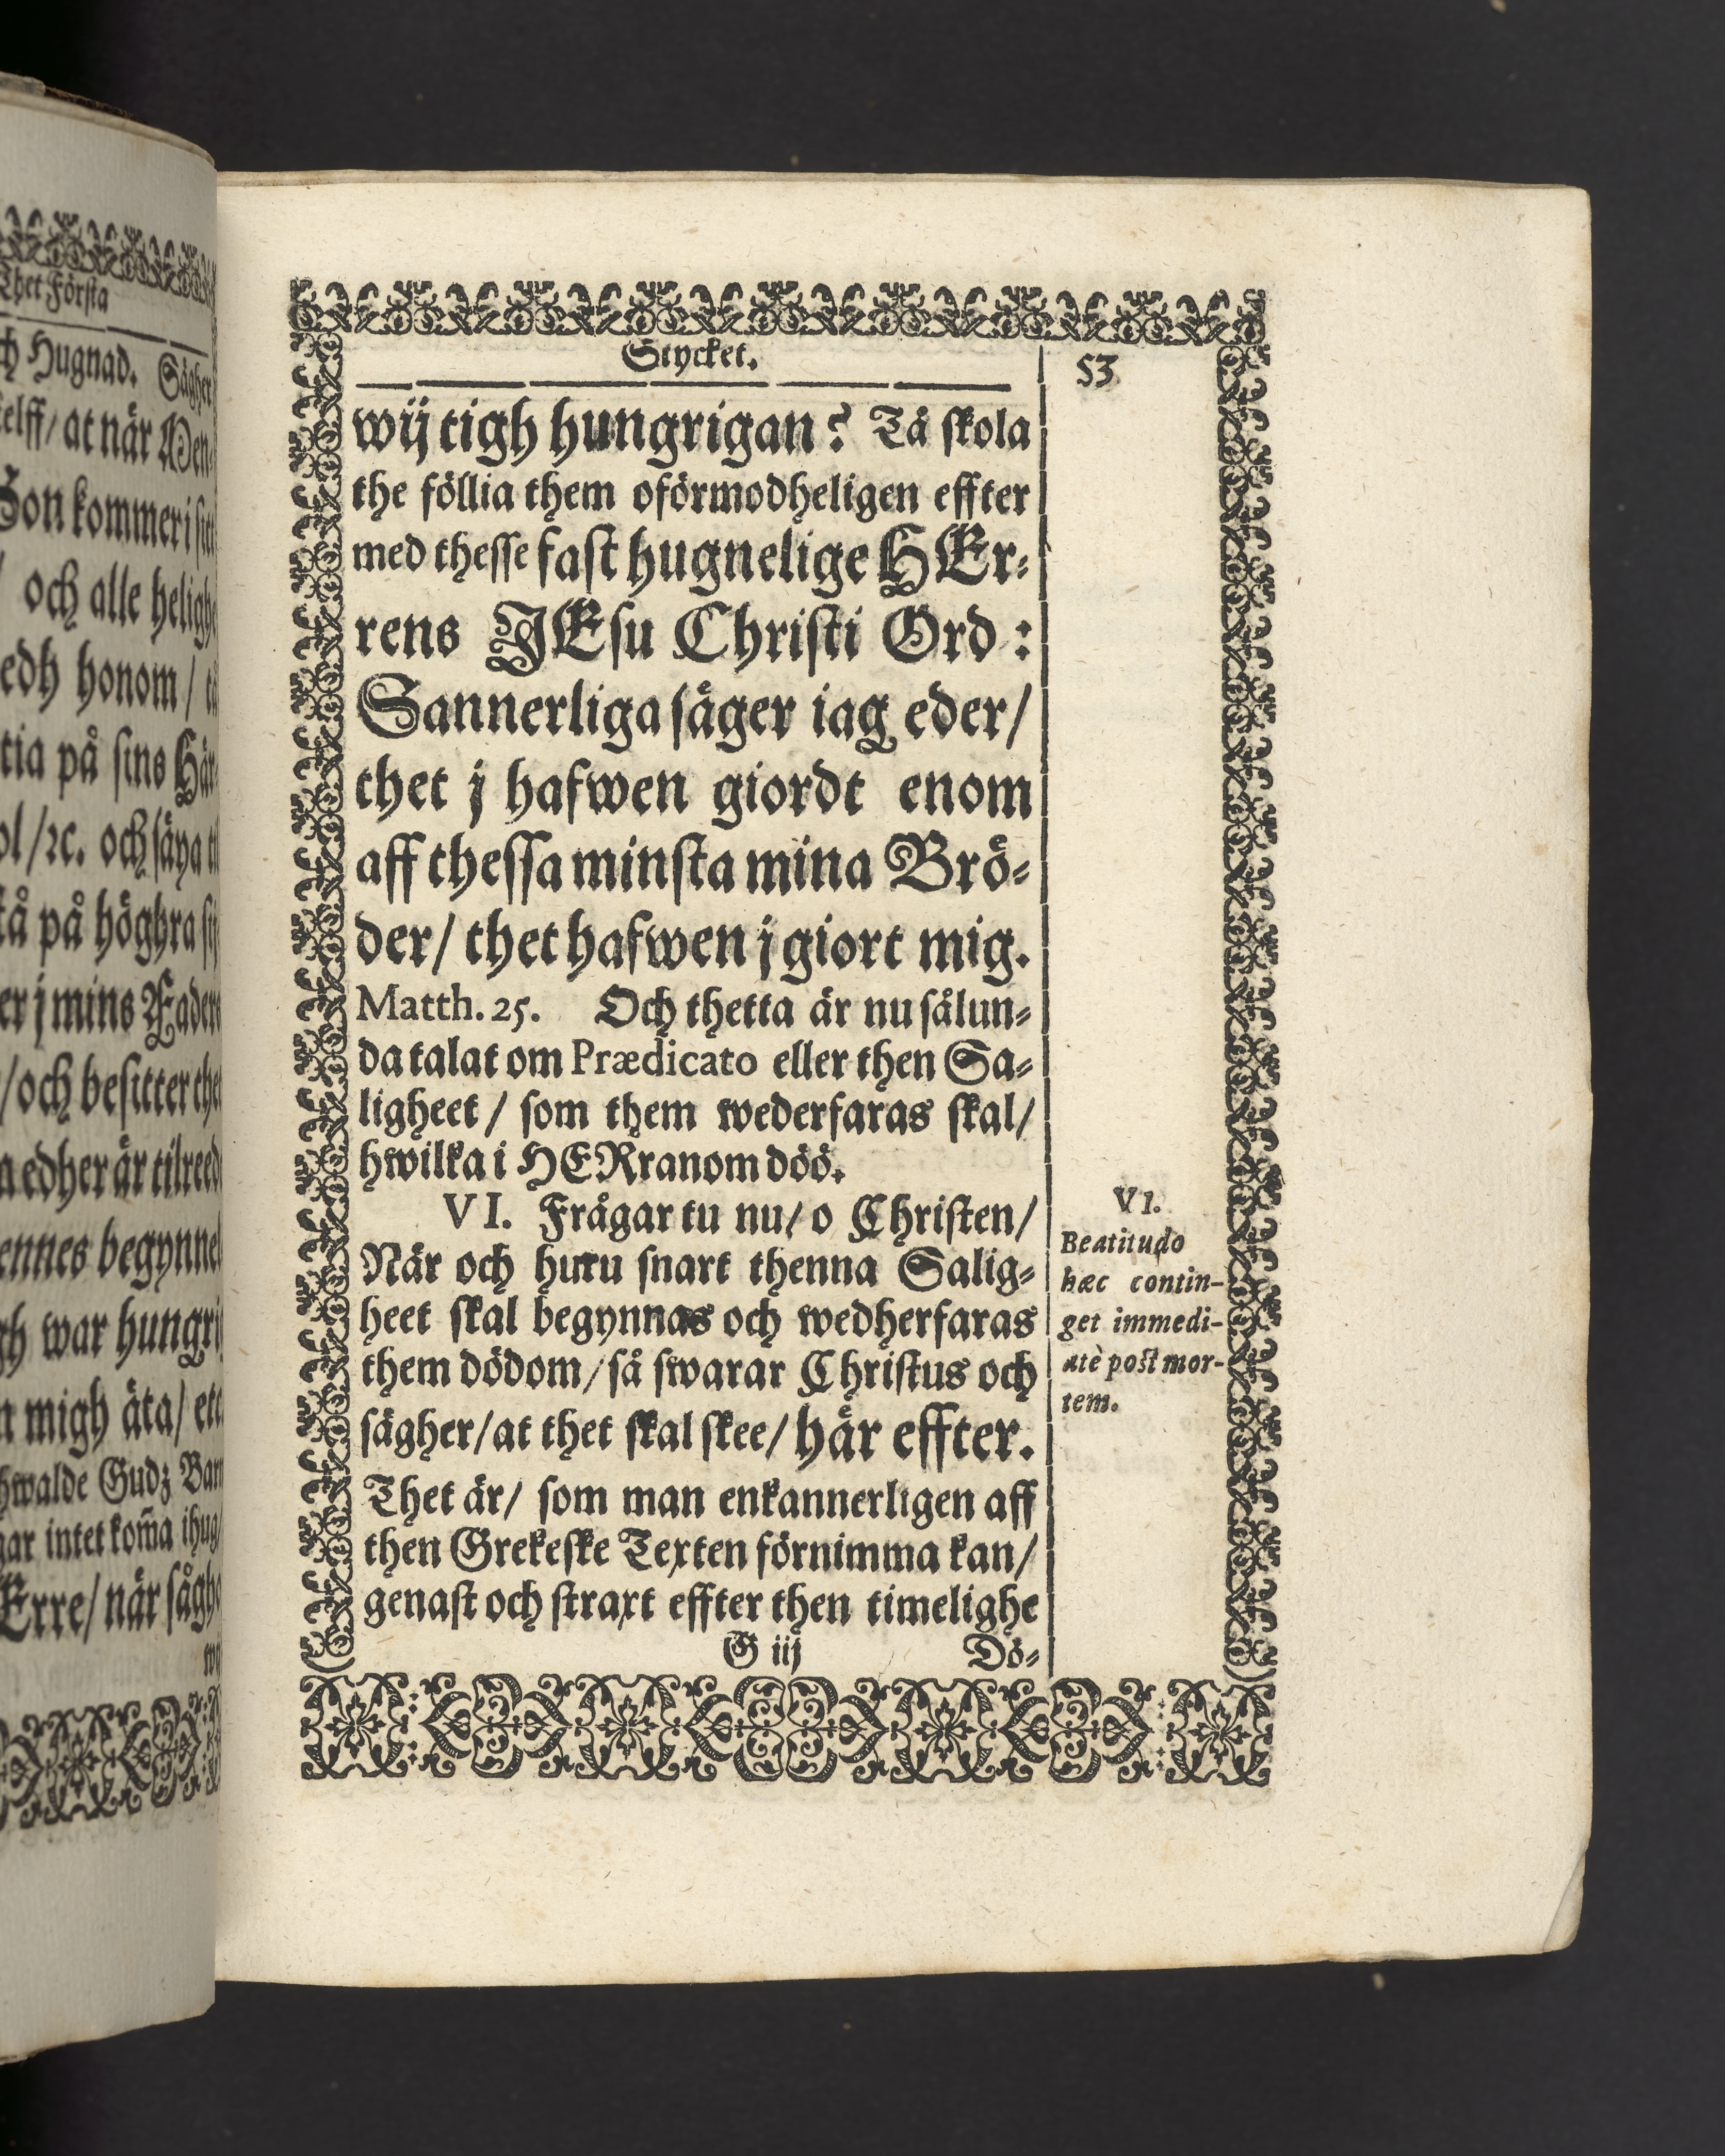 Thet Första
ch Hugnad. Sägher
elff/ at när Men-
Son kommer i sitt
och alle helighe
edh honom / tå
tia på sins Här-
ol/ꝛc. och säya ti
tå på höghra sij
er j mins Faders
/och besitter the
a edher är tilreed
ennes begynnel
gh war hungri
n migh äta/ etc
hwalde Gudz Barn
gar intet kom̃a ihug/
Erre/ när såghe
Stycket. 53
wij tigh hungrigan? Tå skola
the föllia them oförmodheligen effter
med thesse fast hugnelige HEr-
rens JEsu Christi Ord:
Sannerliga säger iag eder/
thet j hafwen giordt enom
aff thessa minsta mina Brö-
der/ thet hafwen j giort mig.
Matth. 25. Och thetta är nu sålun-
da talat om Prædicato eller then Sa-
ligheet/ som them wederfaras skal/
hwilka i HERranom döö.
VI. Frågar tu nu/ o Christen/
När och huru snart thenna Salig-
heet skal begynnas och wedherfaras
them dödom/ så swarar Christus och
sägher/ at thet skal skee/ här effter.
Thet är/ som man enkannerligen aff
then Grekeske Texten förnimma kan/
genast och straxt effter then timelighe
G iij Dö-
VI.
Beatitudo
hæc contin-
get immedi-
atè post mor-
tem.